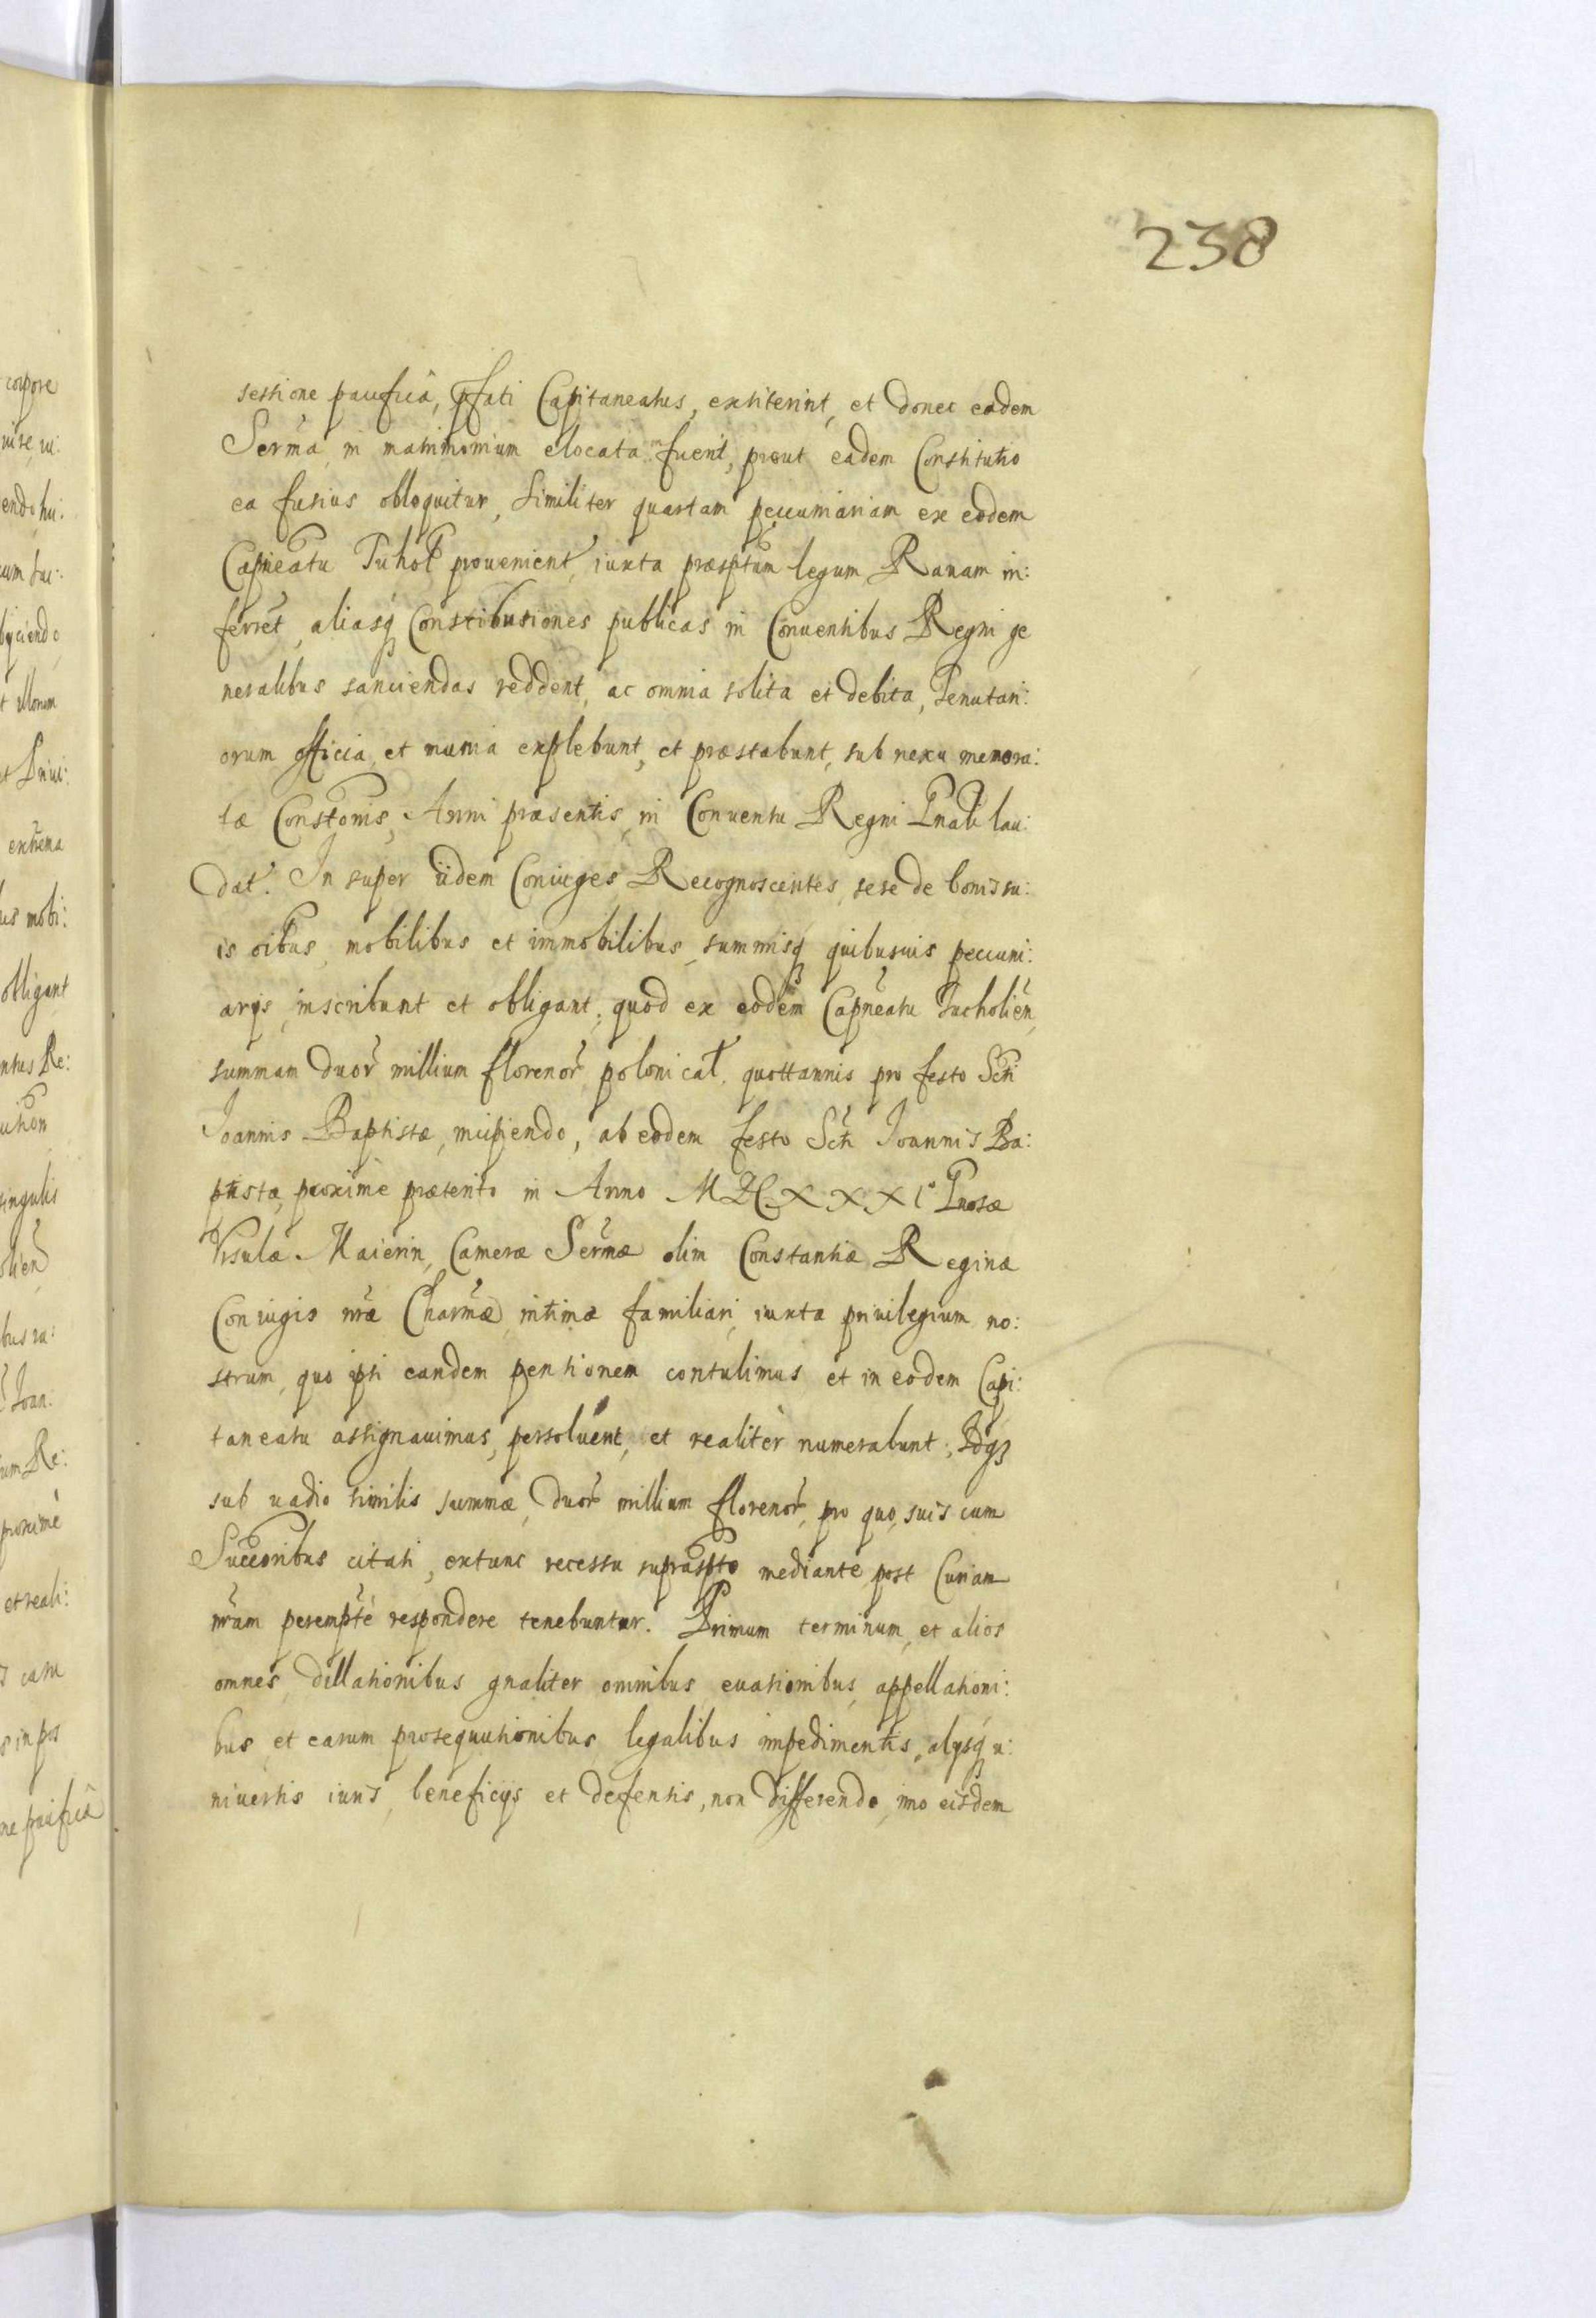 238
sessione pacificâ, pfati Capitaneatus, extiterint, et donec eadem
Serma, in matrimonium elocata fuerit, prout eadem Constitutio
ea fusius obloquitur, Similiter quartam peccuniariam ex eodem
Capneatu Tuhol provenient, iuxta præsptum legum Rauam in:
ferret, aliasq Constitutiones publicas in Conuentibus Regni ge
neralibus sanciendas reddent, ac omnia solita et debita, Tenutari:
orum officia, et munia explebunt, et præstabunt, sub nexu memora:
tæ Constonis, Anni præsentis, in Conuentu Regni Gnali lau:
dat. In super iidem Coniuges Recognoscentes, sese de bonis su:
is oibus, mobilibus et immobilibus, summisq quibusuis peccuni:
arijs, inscribunt et obligant, quod ex eodem Capneatu Tucholien,
summam duor millium florenor polonical. quottannis pro festo Scti
Joannis Baptistæ, incipiendo, ab eodem festo Scti Joannis Ba:
ptistæ, proxime præterito in Anno MDCXXXI° Gnosæ
Vrsulæ Maierin, Cameræ Sermæ olim Constantiæ Reginæ
Coniugis nræ Charmæ, intimæ familiari, iuxta priuilegium no:
strum, quo ipsi eandem pensionem contulimus et in eodem Capi:
taneatu assignauimus, persoluent, et realiter numerabunt, Idq
sub uadio similis summæ, duor millium florenor, pro quo, suis cum
Succoribus citati, extunc recessu suprasspto mediante, post Curiam
nram perempte respondere tenebuntur. Primum terminum, et alios
omnes, dillationibus gnaliter omnibus, euasionibus, appellationi:
bus, et earum prosequutionibus, legalibus impedimentis, alysq u:
niuersis iuris, beneficijs et defensis, non differendo, imo eisdem